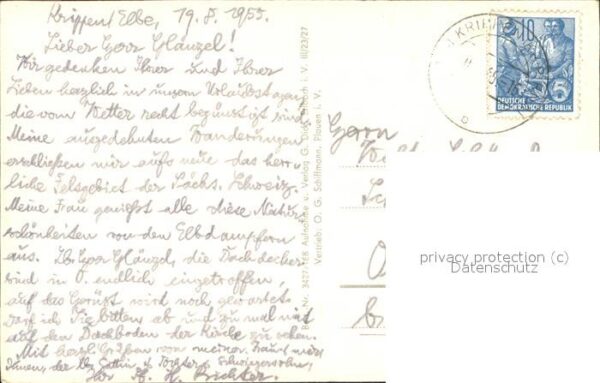 Krippen/Elbe, 19.8.1955.
Lieber Herr Glänzel!
Wir gedenken Ihrer und Ihrer
Lieben herzlich in unsern Urlaubstagen
die vom Wetter recht begünstigt sind.
Meine ausgedehnten Wanderungen
erschließen mir aufs neue das herr-
liche Felsgebiet der Sächs. Schweiz.
Meine Frau genießt alle diese Natur-
schönheiten von den Elbdampfern
aus. Lb. Herr Glänzel, die Dachdecker
sind in O. endlich eingetroffen,
auf das Gerüst wird noch gewartet.
Darf ich Sie bitten ab und zu mal mit
auf den Dachboden der Kirche zu sehen.
Mit herzl. Grüßen von meiner Frau u. mir
Ihnen, der lb. Gattin u. Tochter u. Schwiegersohn,
Ihr H. Richter.
Best.-Nr. 3437/158 Aufnahme u. Verlag G. i. V. III/23/27
Vertrieb: O. G. Schiffmann, Plauen i. V.
Herrn
KRIPPEN
10
DEUTSCHE
DEMOKRATISCHE REPUBLIK
privacy protection (c)
Datenschutz